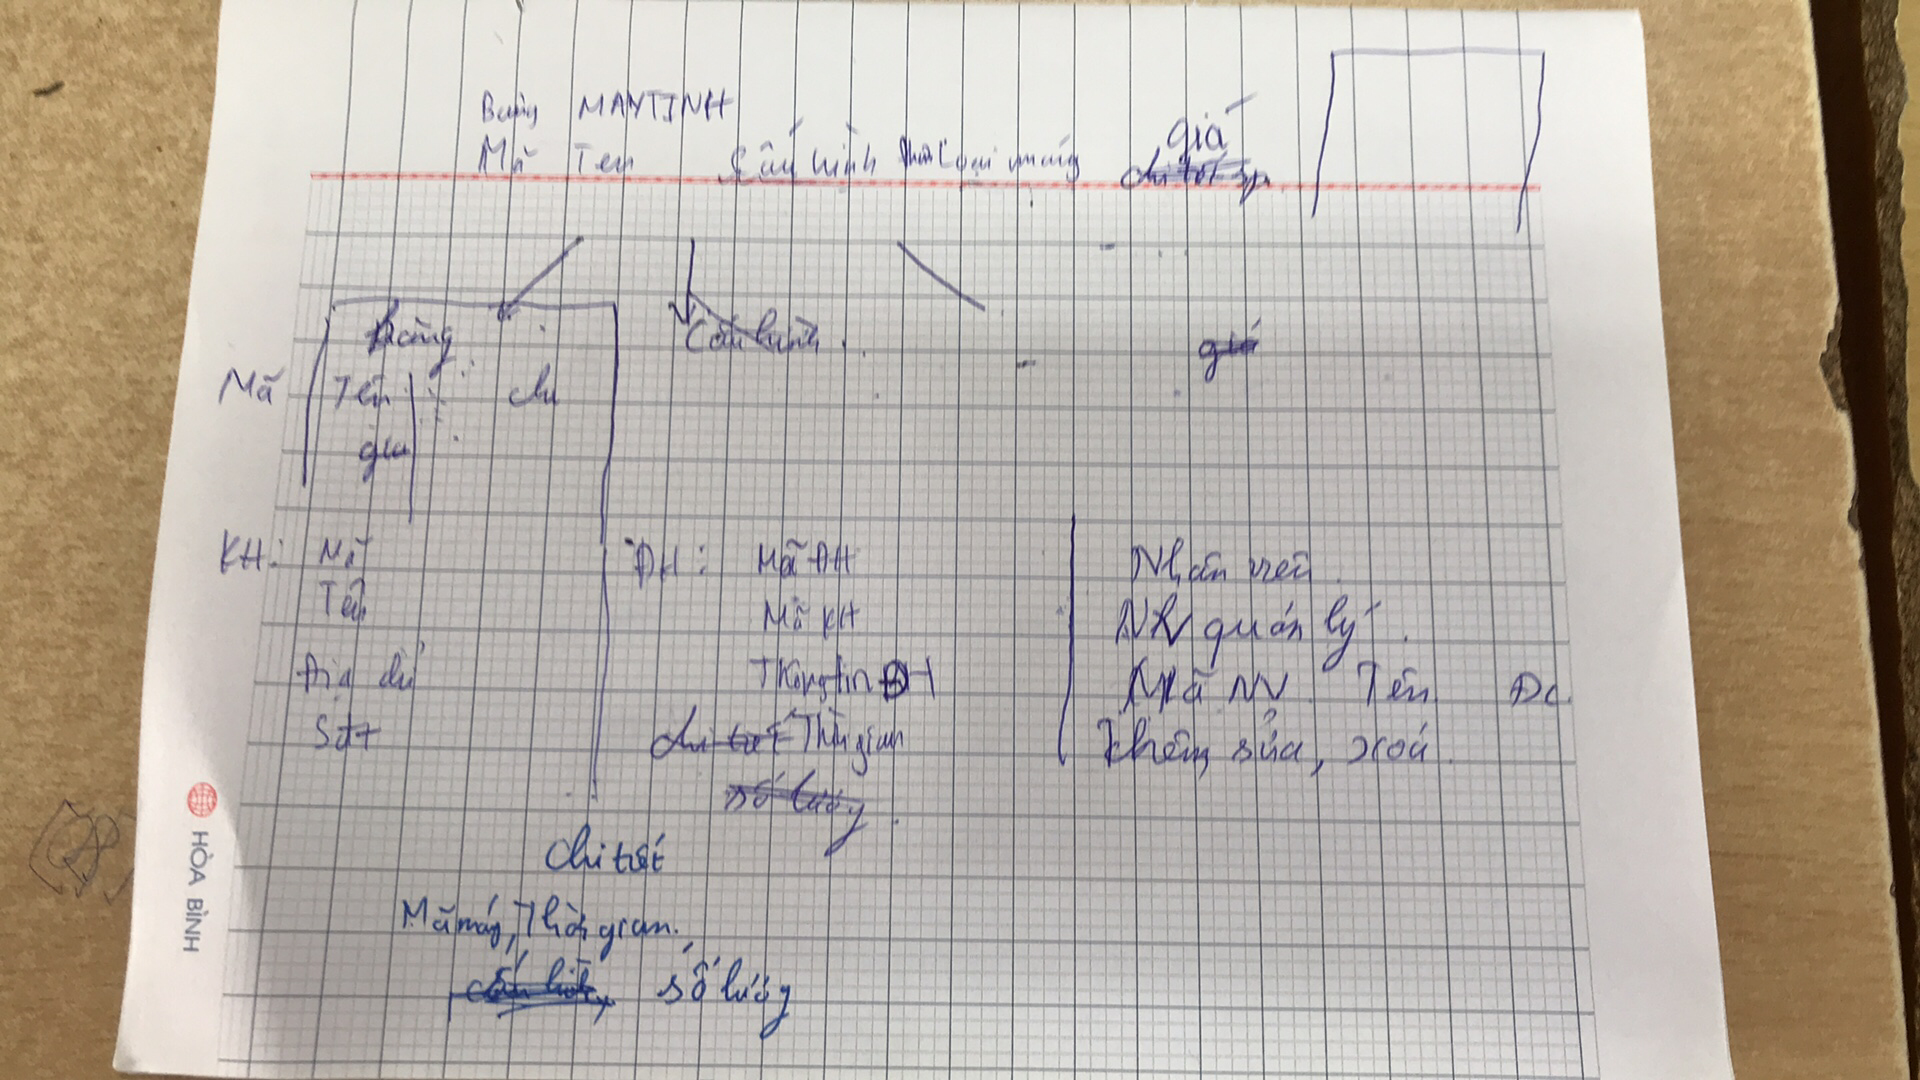 Bảng MAYTINH
Mã Tên Cấu hình Loại máy giá
chi tiết sp
Cấu hình giá
Mã Tên chi
giá
KH: Mã
Tên
Địa chỉ
Sđt
ĐH: Mã ĐH
Mã KH
Thông tin ĐH
chi tiết Thời gian
số lượng
Nhân viên
NV quản lý
Mã NV Tên Đc
thêm, sửa, xoá
chi tiết
Mã máy, Thời gian.
cấu hình, số lượng
HÒA BÌNH